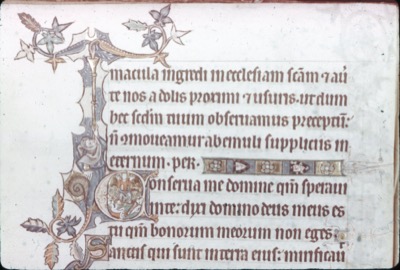 macula ingredi in ecclesiam sc̃am ⁊ au
te nos a dolis proximi ⁊ usuris. ut dum
hec sc̃dm tuum obseruamus preceptũ:
ñ ꝯmoueamur ab emuli suppliciis in
eternum. per.
Conserua me domine qm̃ speraui
in te: dixi domino deus meus es
tu qm̃ bonorum meorum non eges
Sanctis qui sunt in terra eius: mirificau